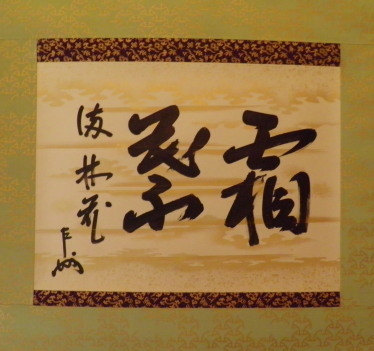 霜
葉
満林花